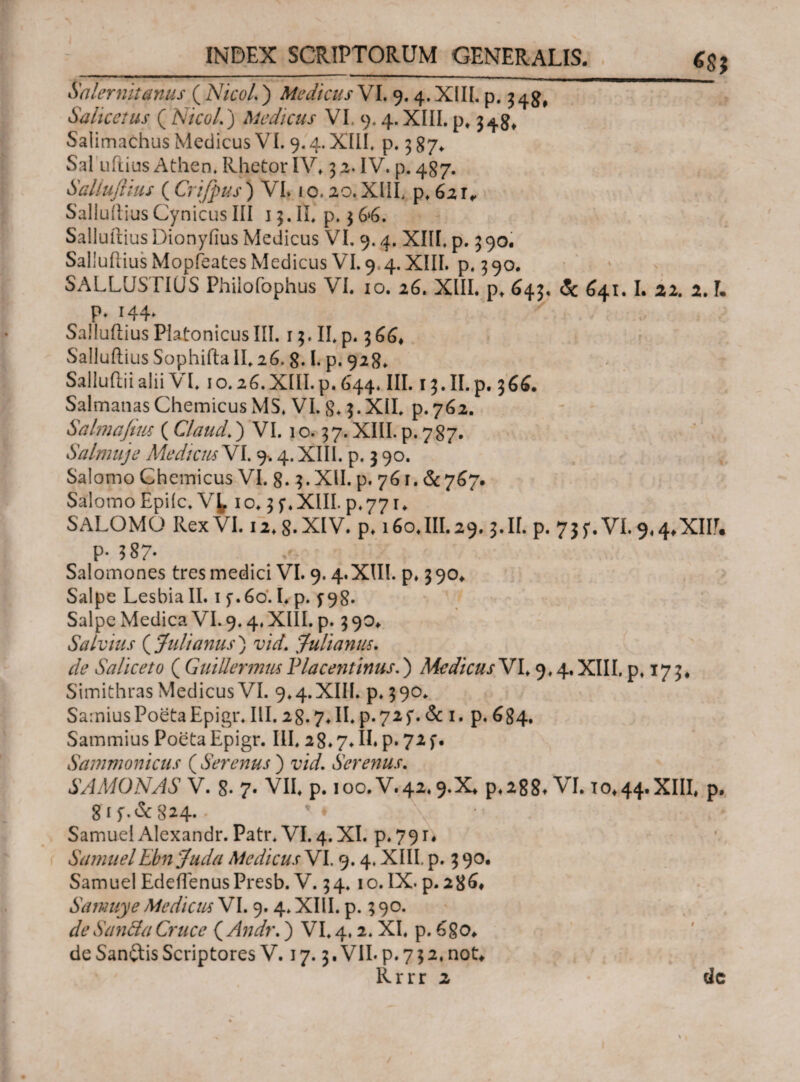 INDEX SCRIPTORUM GENERALIS. 683
Salernitanus (Nicol.) Medicus VI. 9. 4. XIII. p. 348.
Salicetus (Nicol.) Medicus VI. 9. 4. XIII. p. 348.
Salimachus Medicus VI. 9. 4. XIII. p. 387.
Sal uſtius Athen. Rhetor IV. 32. IV. p. 487.
Salluſtius (Criſpus) VI. 10. 20. XIII. p. 621.
Salluſtius Cynicus III 13. II. p. 366.
Salluſtius Dionyſius Medicus VI. 9. 4. XIII. p. 390.
Salluſtius Mopſeates Medicus VI. 9. 4. XIII. p. 390.
SALLUSTIUS Philoſophus VI. 10. 26. XIII. p. 643. & 641. I. 22. 2. I.
p. 144.
Salluſtius Platonicus III. 13. II. p. 366.
Salluſtius Sophiſta II. 26. 8. I. p. 928.
Salluſtii alii VI. 10. 26. XIII. p. 644. III. 13. II. p. 366.
Salmanas Chemicus MS. VI. 8. 3. XII. p. 762.
Salmaſius (Claud.) VI. 10. 37. XIII. p. 787.
Salmuje Medicus VI. 9. 4. XIII. p. 390.
Salomo Chemicus VI. 8. 3. XII. p. 761. & 767.
Salomo Epiſc. VI. 10. 35. XIII. p. 771.
SALOMO Rex VI. 12. 8. XIV. p. 160. III. 29. 3. II. p. 735. VI. 9. 4. XIII.
p. 387.
Salomones tres medici VI. 9. 4. XIII. p. 390.
Salpe Lesbia II. 15. 60. I. p. 598.
Salpe Medica VI. 9. 4. XIII. p. 390.
Salvius (Julianus) vid. Julianus.
de Saliceto (Guillermus Placentinus.) Medicus VI. 9. 4. XIII. p. 173.
Simithras Medicus VI. 9. 4. XIII. p. 390.
Samius Poëta Epigr. III. 28. 7. II. p. 725. & 1. p. 684.
Sammius Poëta Epigr. III. 28. 7. II. p. 725.
Sammonicus (Serenus) vid. Serenus.
SAMONAS V. 8. 7. VII. p. 100. V. 42. 9. X. p. 288. VI. 10. 44. XIII. p.
815. & 824.
Samuel Alexandr. Patr. VI. 4. XI. p. 791.
Samuel Ebn Juda Medicus VI. 9. 4. XIII. p. 390.
Samuel Edeſſenus Presb. V. 34. 10. IX. p. 286.
Samuye Medicus VI. 9. 4. XIII. p. 390.
de Sancta Cruce (Andr.) VI. 4. 2. XI. p. 680.
de Sanctis Scriptores V. 17. 3. VII. p. 732. not.
Rrrr 2 de